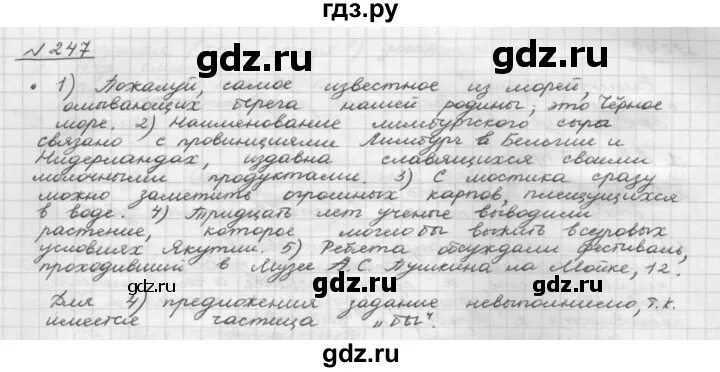 гдз.ру
N 247
gdz.ru gdz.ru
• 1) Пожалуй, самое известное из морей,
омывающих берега нашей родины, это Чёрное
море. 2) Наименование лимбургского сыра
связано с провинциями Лимбург в Бельгии и
Нидерландах, издавна славящихся своими
молочными продуктами. 3) С мостика сразу
можно заметить огромных карпов, плещущихся
в воде. 4) Тридцать лет ученые выводили
gdz.ru gdz.ru
растение, которое могло бы выжить в суровых
условиях Якутии. 5) Ребята обсуждали фестиваль,
проходивший в Музее А.С. Пушкина на Мойке, 12.
gdz.ru gdz.ru
Для 4) предложения задание невыполнимо, т.к.
имеется частица „бы".
gdz.ru gdz.ru